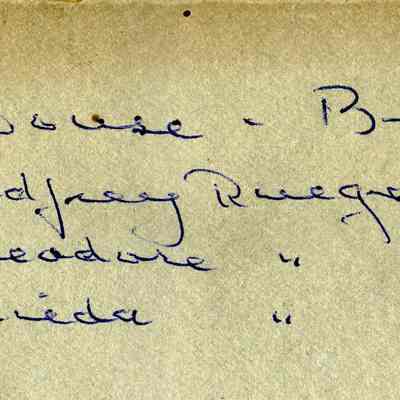 ouse - B-
dfrey Rueg
eodore "
ieda "